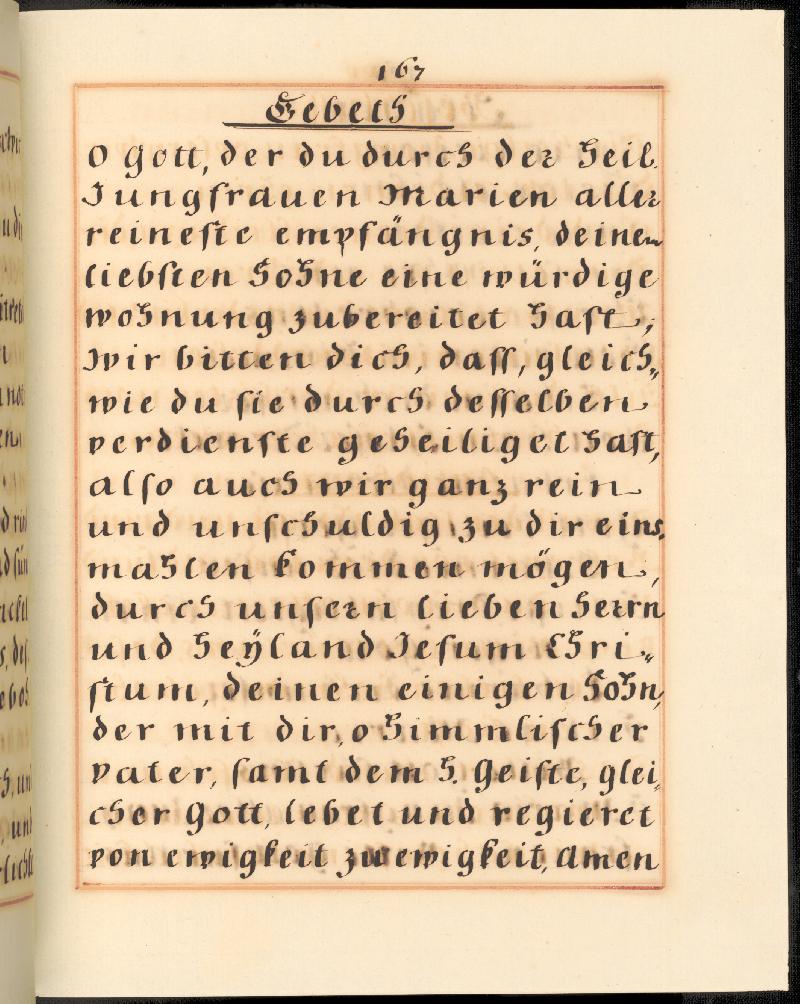 167
Gebeth
O Gott, der du durch der Heil.
Jungfrauen Marien aller
reineste empfängnis, deinem
liebsten Sohne eine würdige
wohnung zubereitet hast,
Wir bitten dich, dass, gleich„
wie du sie durch desselben
verdienste geheiliget hast,
also auch wir ganz rein
und unschuldig zu dir eins„
mahlen kommen mögen,
durch unsern lieben Herrn
und Heÿland Jesum Chri„
stum, deinen einigen Sohn,
der mit dir, o himmlischer
vater, samt dem H. Geiste, glei„
cher Gott, lebet und regieret
von ewigkeit zu ewigkeit, Amen